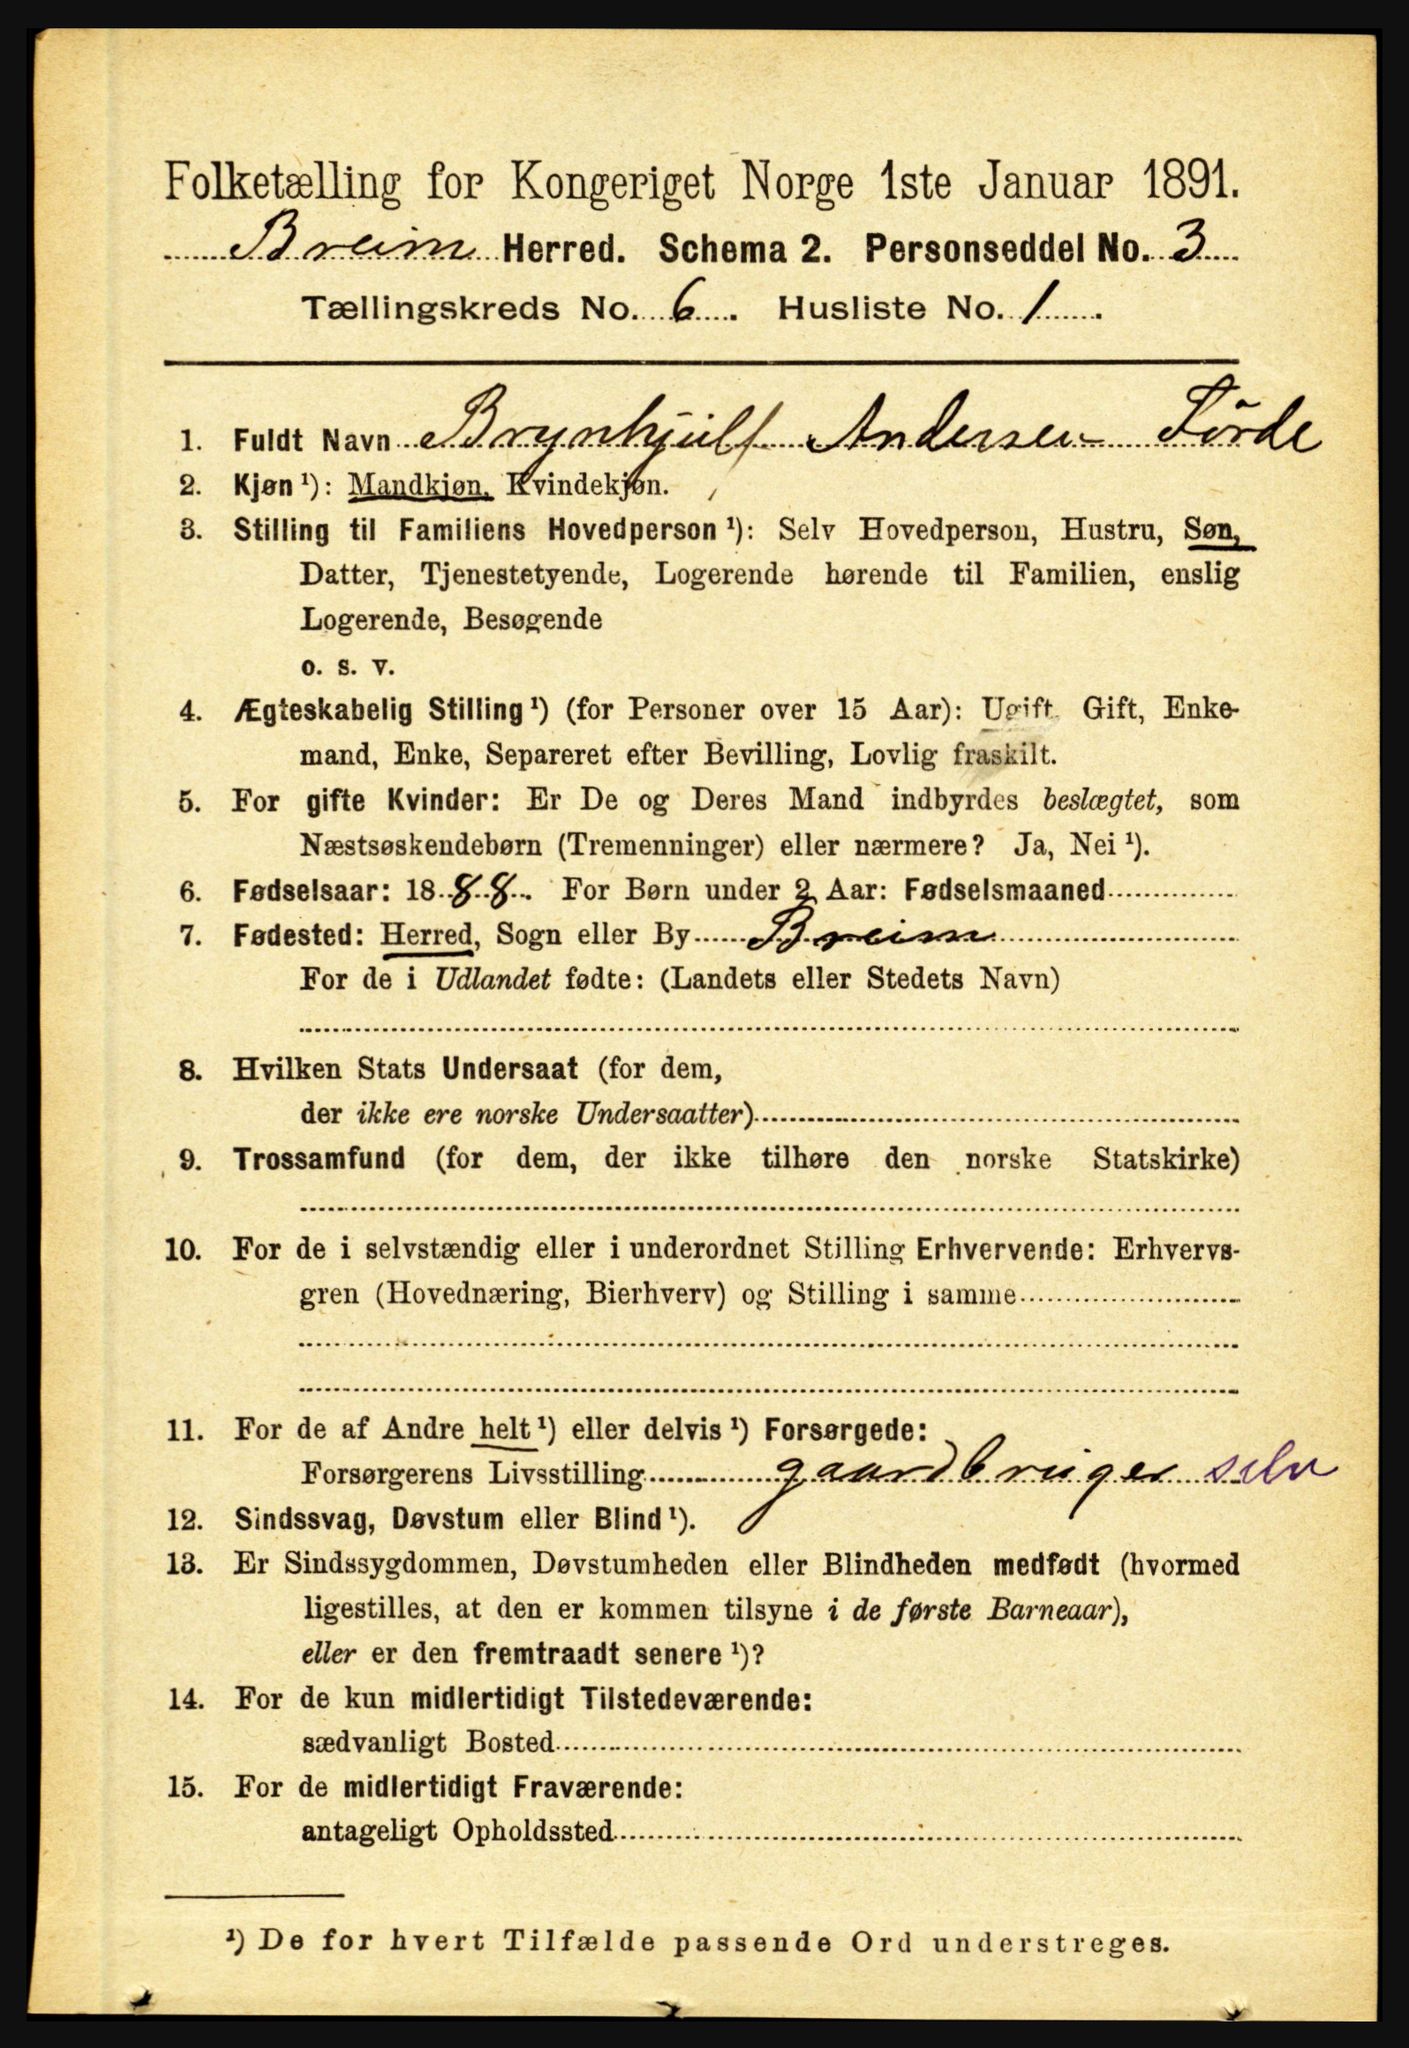 Folketælling for Kongeriget Norge 1ste Januar 1891.
Breim Herred. Schema 2. Personseddel No. 3
Tællingskreds No. 6. Husliste No. 1.
1. Fuldt Navn Brynhjulf Andersen Förde
2. Kjøn ¹): Mandkjøn, Kvindekjøn.
3. Stilling til Familiens Hovedperson ¹): Selv Hovedperson, Hustru, Søn,
Datter, Tjenestetyende, Logerende hørende til Familien, enslig
Logerende, Besøgende
o. s. v.
4. Ægteskabelig Stilling ¹) (for Personer over 15 Aar): Ugift, Gift, Enke-
mand, Enke, Separeret efter Bevilling, Lovlig fraskilt.
5. For gifte Kvinder: Er De og Deres Mand indbyrdes beslægtet, som
Næstsøskendebørn (Tremenninger) eller nærmere? Ja, Nei ¹).
6. Fødselsaar: 1888. For Børn under 2 Aar: Fødselsmaaned
7. Fødested: Herred, Sogn eller By Breim
For de i Udlandet fødte: (Landets eller Stedets Navn)
8. Hvilken Stats Undersaat (for dem,
der ikke ere norske Undersaatter)
9. Trossamfund (for dem, der ikke tilhøre den norske Statskirke)
10. For de i selvstændig eller i underordnet Stilling Erhvervende: Erhvervs-
gren (Hovednæring, Bierhverv) og Stilling i samme
11. For de af Andre helt ¹) eller delvis ¹) Forsørgede:
Forsørgerens Livsstilling gaardbruger selv
12. Sindssvag, Døvstum eller Blind ¹).
13. Er Sindssygdommen, Døvstumheden eller Blindheden medfødt (hvormed
ligestilles, at den er kommen tilsyne i de første Barneaar),
eller er den fremtraadt senere ¹)?
14. For de kun midlertidigt Tilstedeværende:
sædvanligt Bosted
15. For de midlertidigt Fraværende:
antageligt Opholdssted
¹) De for hvert Tilfælde passende Ord understreges.